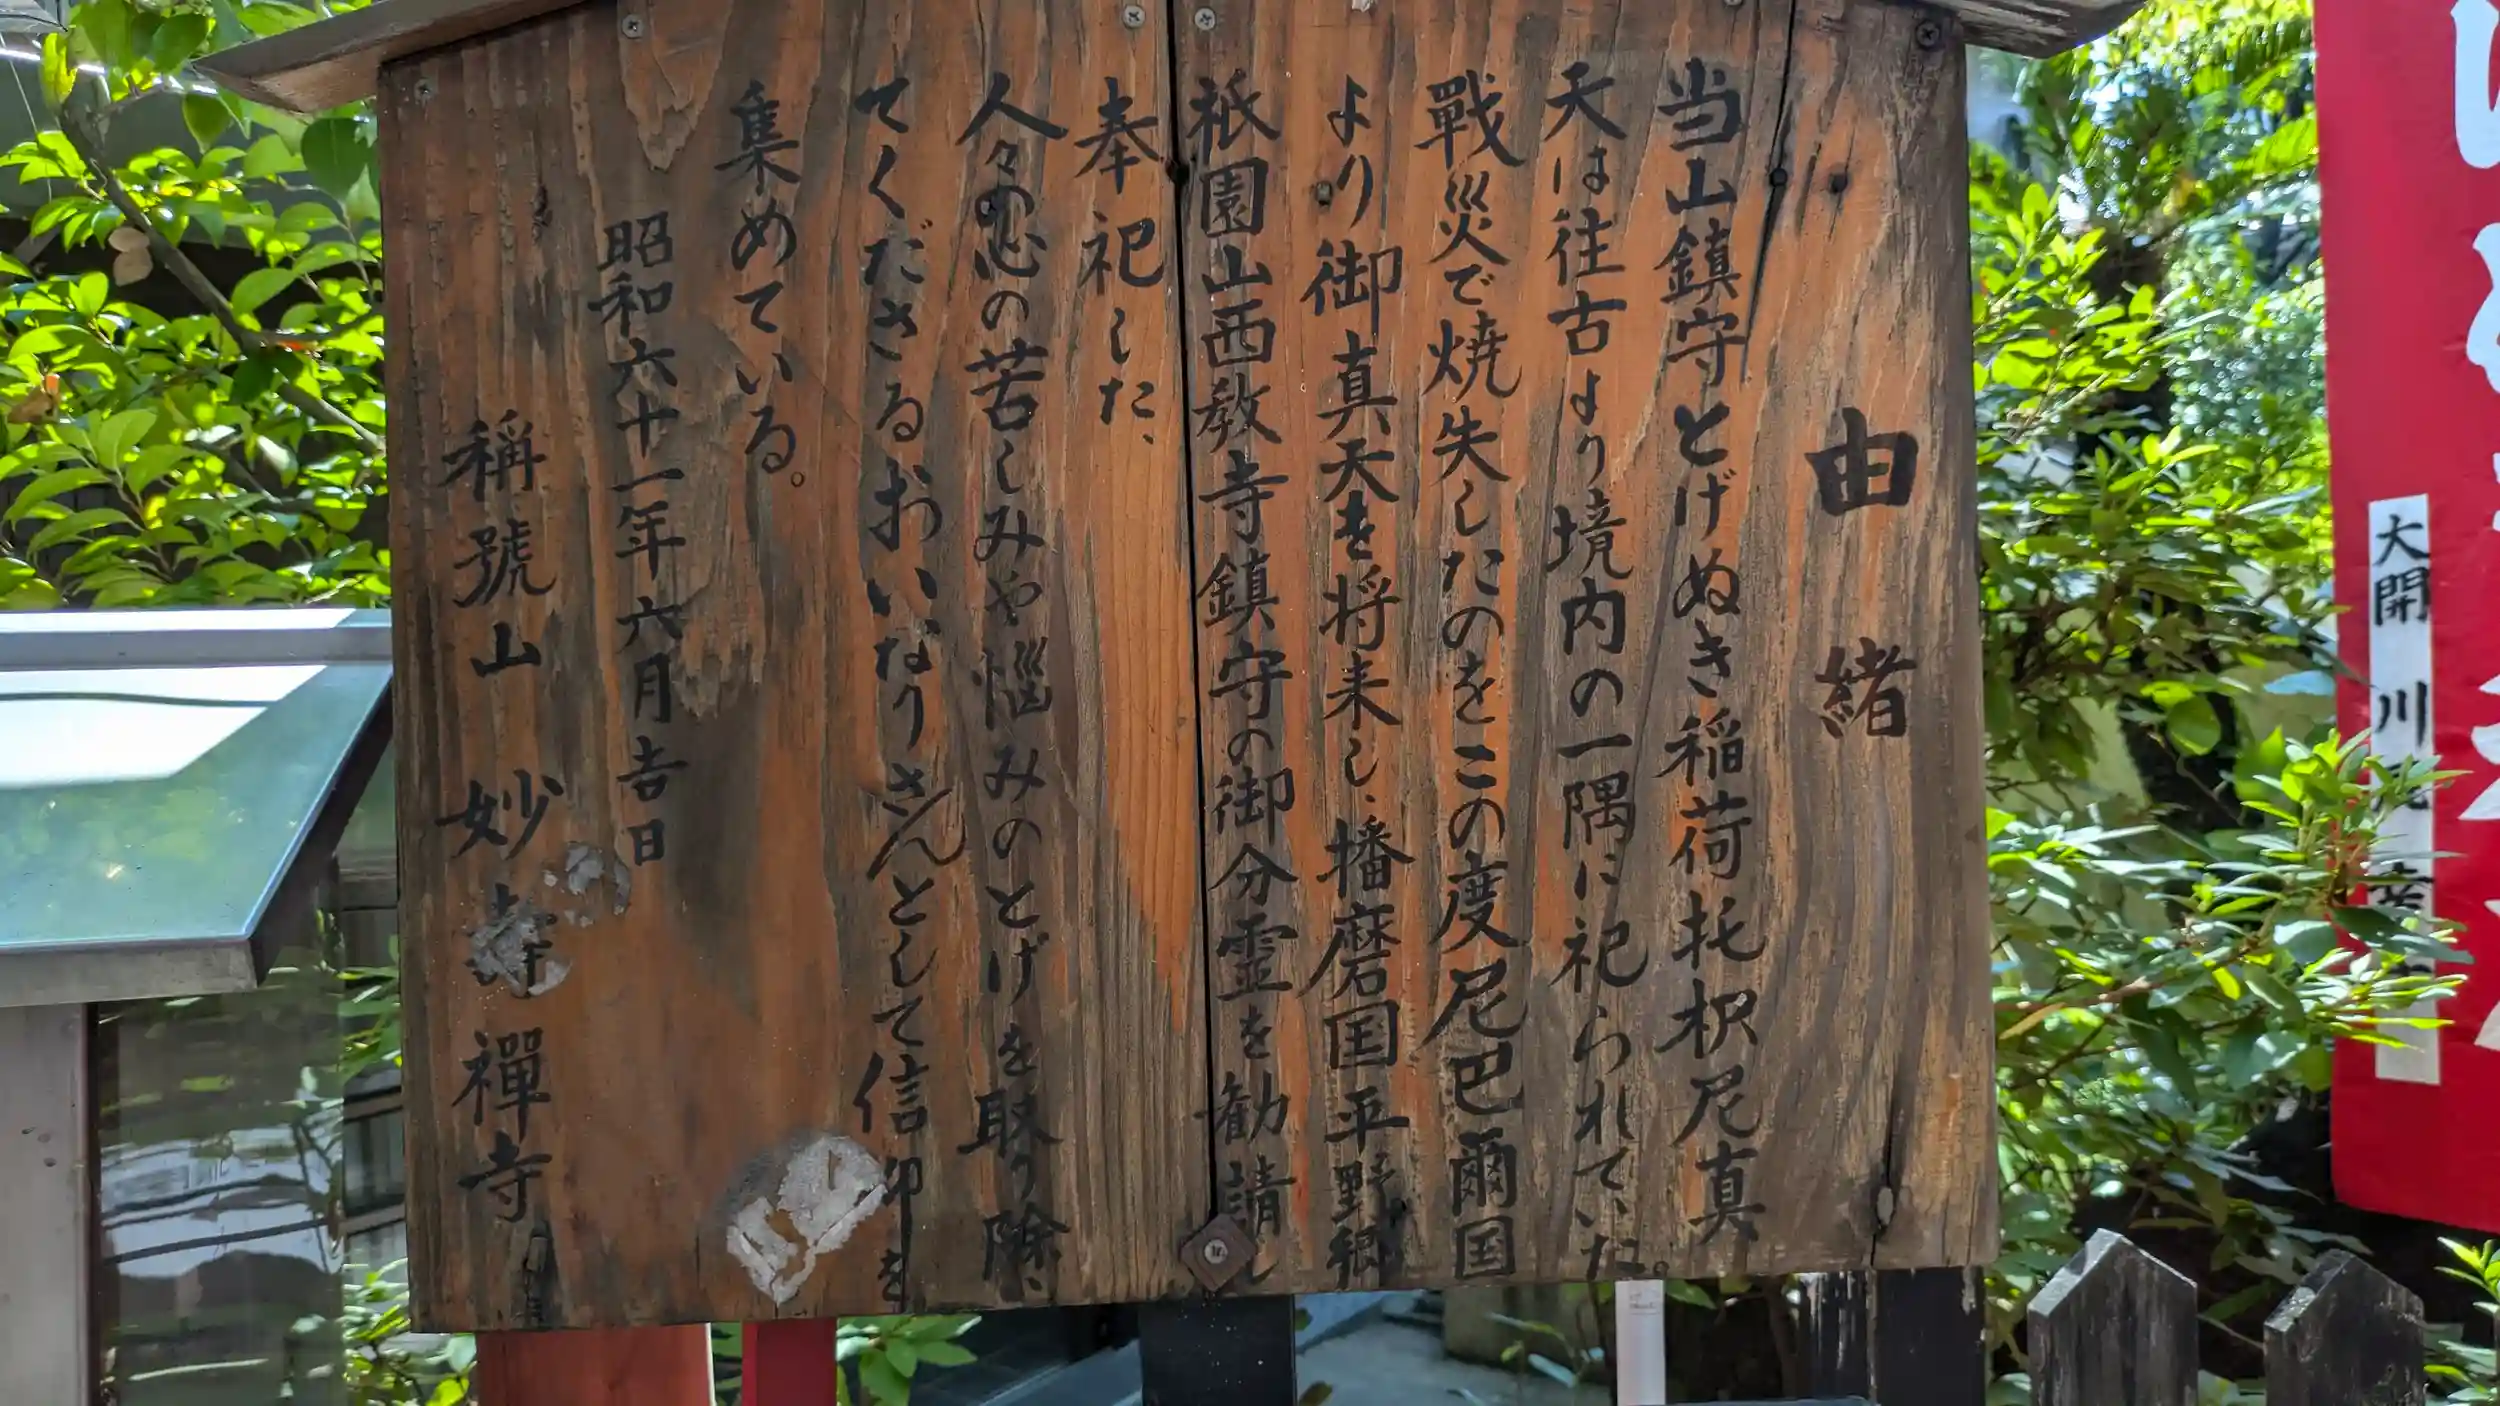 由緒
当山鎮守とげぬき稲荷托枳尼真
天は往古より境内の一隅に祀られていた。
戰災で焼失したのをこの度尼巴爾国
より御真天を将来し、播磨国平野郷
祇園山西教寺鎮守の御分霊を勧請し
奉祀した、
人々の心の苦しみや悩みのとげを取り除、
てくださるおいなりさんとして信仰を
集めている。
昭和六十一年六月吉日
稱號山 妙寺禪寺
大開 川